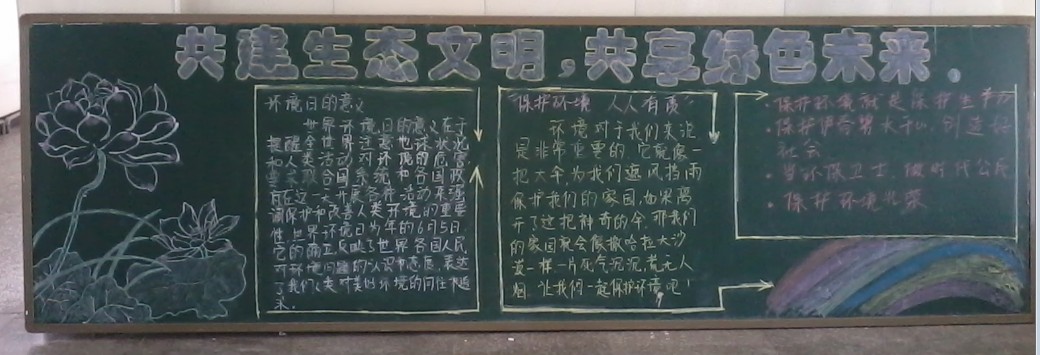 共建生态文明，共享绿色未来。
环境日的意义
世界环境日的意义在于
提醒全世界注意地球状况
和人类活动对环境的危害。
要求联合国系统和各国政
府在这一天开展各种活动来强
调保护和改善人类环境的重要
性。世界环境日为每年的6月5日,
它的确立反映了世界各国人民
对环境问题的认识和态度,表达
了我们人类对美好环境的向往和追
求。
"保护环境 人人有责"
环境对于我们来说
是非常重要的,它就像一
把大伞,为我们遮风挡雨
保护我们的家园,如果离
开了这把神奇的伞,那我们
的家园就会像撒哈拉大沙
漠一样一片死气沉沉,荒无人
烟。让我们一起保护环境吧!
·保护环境就是保护生产力
·保护 创造好
社会
·当环保卫士,做时代公民
·保护环境光荣